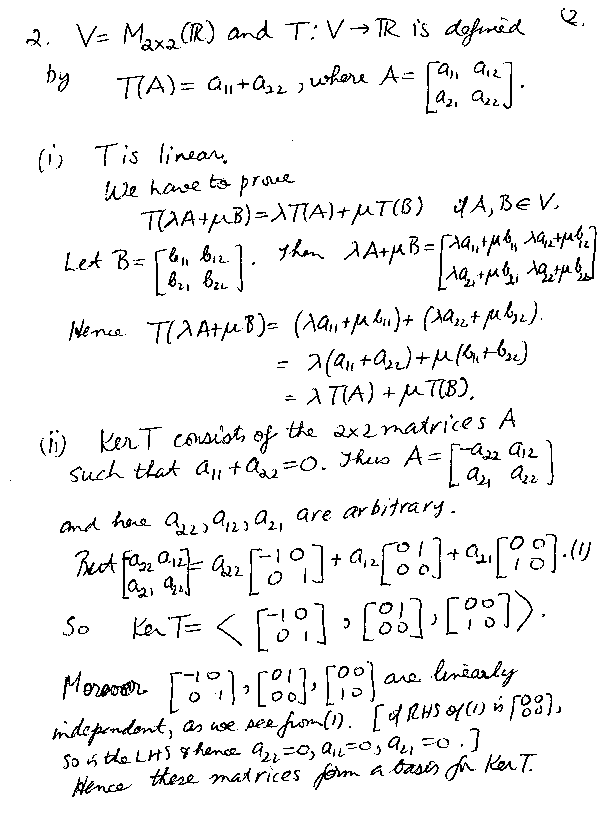 (2.
2. V = M₂ₓ₂(ℝ) and T: V → ℝ is defined
by T(A) = a₁₁ + a₂₂, where A = [a₁₁ a₁₂; a₂₁ a₂₂].
(i) T is linear.
We have to prove
T(λA+μB) = λT(A) + μT(B) if A, B ∈ V.
Let B = [b₁₁ b₁₂; b₂₁ b₂₂]. Then λA+μB = [λa₁₁+μb₁₁ λa₁₂+μb₁₂; λa₂₁+μb₂₁ λa₂₂+μb₂₂]
Hence T(λA+μB) = (λa₁₁+μb₁₁) + (λa₂₂+μb₂₂).
= λ(a₁₁+a₂₂) + μ(b₁₁+b₂₂)
= λT(A) + μT(B).
(ii) Ker T consists of the 2x2 matrices A
such that a₁₁ + a₂₂ = 0. Thus A = [-a₂₂ a₁₂; a₂₁ a₂₂]
and here a₂₂, a₁₂, a₂₁ are arbitrary.
But [a₂₂ a₁₂; a₂₁ a₂₂] = a₂₂ [-1 0; 0 1] + a₁₂ [0 1; 0 0] + a₂₁ [0 0; 1 0]. (1)
So Ker T = < [-1 0; 0 1], [0 1; 0 0], [0 0; 1 0] >.
Moreover [-1 0; 0 1], [0 1; 0 0], [0 0; 1 0] are linearly
independent, as we see from (1). [if RHS of (1) is [0 0; 0 0],
so is the LHS & hence a₂₂=0, a₁₂=0, a₂₁=0.]
Hence these matrices form a basis for Ker T.